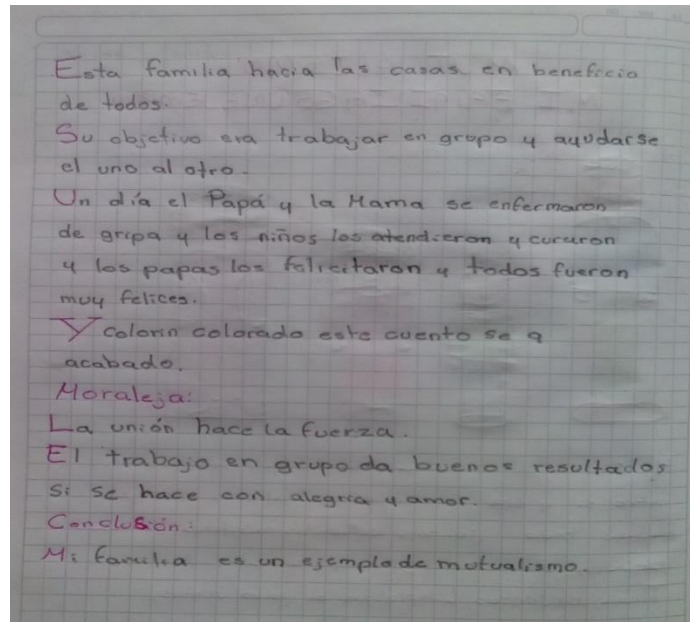 Esta familia hacia las casas en beneficio
de todos.
Su objetivo era trabajar en grupo y ayudarse
el uno al otro.
Un día el Papá y la Mama se enfermaron
de gripa y los niños los atendieron y curaron
y los papas los felicitaron y todos fueron
muy felices.
Y colorin colorado este cuento se a
acabado.
Moraleja:
La unión hace la fuerza.
El trabajo en grupo da buenos resultados
si se hace con alegria y amor.
Conclusión:
Mi familia es un ejemplo de mutualismo.